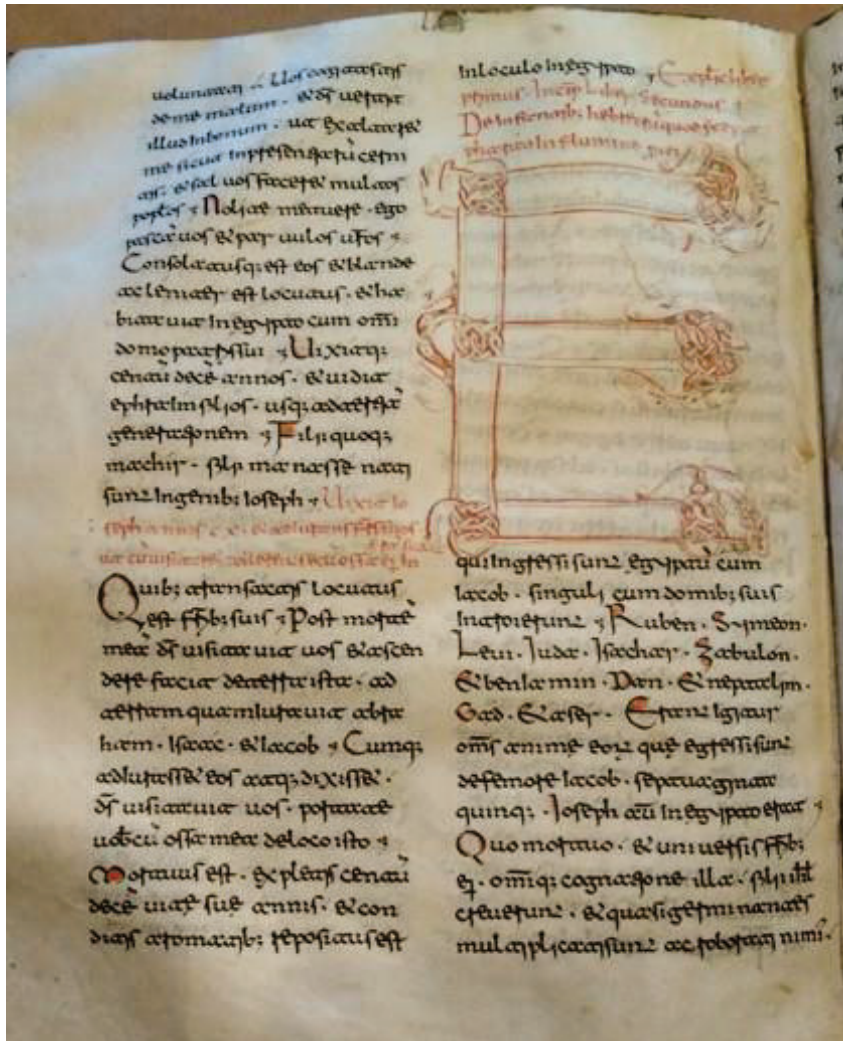 uoluntati · Uos cogitastis
de me malum · & ds̄ uertit
illud inbonum · ut exaltar&
me sicut inpresentiarū cerni
tis · & saluos facer& multos
poplos · Nolite metuere · ego
pascā uos & paruulos ur̄os ·
Consolatusq; est eos & blande
ac leniter est locutus · & ha
bitauit in egypto cum om̄i
domo patris sui · Uixitq;
centū decē annos · & uidit
ephraim filios · usq; ad tertiā
generationem · Filii quoq;
machir · filii manasse nati
sunt ingenib; Ioseph · Uixit Io
seph annis c x ·
Quib; transactis locutus
est fr̄ib; suis · Post mortē
meā ds̄ uisitauit uos & ascen
dere faciet deterra ista · ad
terram quam iurauit abra
ham · Isaac · & Iacob · Cumq;
adiurass& eos atq; dixiss& ·
ds̄ uisitauit uos · portate
uob̄cū ossa mea deloco isto ·
Mortuus est · expletis centū
decē uitę suę annis · & con
ditus aromatib; repositus est
inloculo in egypto · Explic liber
primus · Incip liber secundus
in flumine
E
qui ingressi sunt egyptū cum
Iacob · singuli cum domib; suis
introierunt · Ruben · Symeon ·
Leui · Iuda · Isachar · Zabulon ·
& beniamin · Dan · & neptalim ·
Gad · & aser · Erant igitur
om̄s animę eorū quę egressi sunt
defemore Iacob · septuaginta
quinq; · Ioseph autē in egypto erat ·
Quo mortuo · & uniuersis fr̄ib;
ei · omniq; cognatione illa · filii isr̄l
creuerunt · & quasi germinantes
multiplicati sunt ac roborati nimis ·